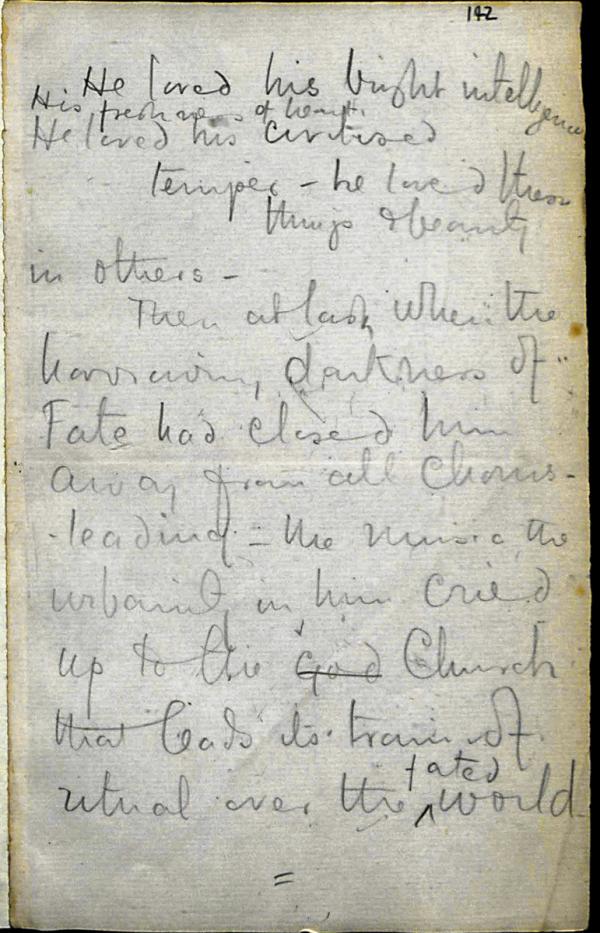 142
He loved his bright intelligence
His freshness of heart.
He loved his civilised
temper - he loved these
things & beauty
in others -
Then at last, when the
harrowing darkness of
Fate had closed him
away from all Chorus-
-leading - the music, the
urbanity in him cried
up to the God Church
that leads its train of
fated
ritual over the world.
=